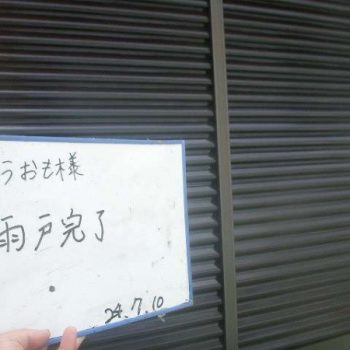 うおも様
雨戸完了
24.7.10